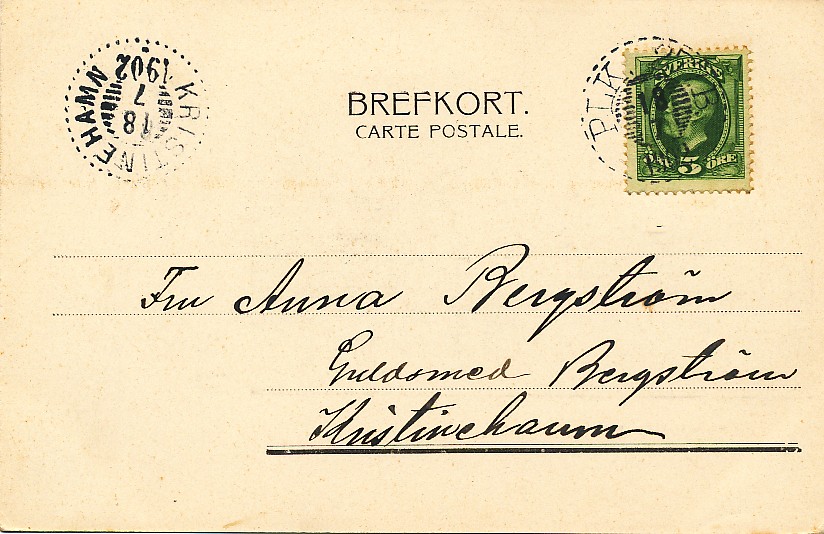 KRISTINEHAMN
18
7
1902
BREFKORT.
CARTE POSTALE.
PLK
18
SVERIGE
5
ÖRE
Fru Anna Bergström
Guldsmed Bergström
Kristinehamn